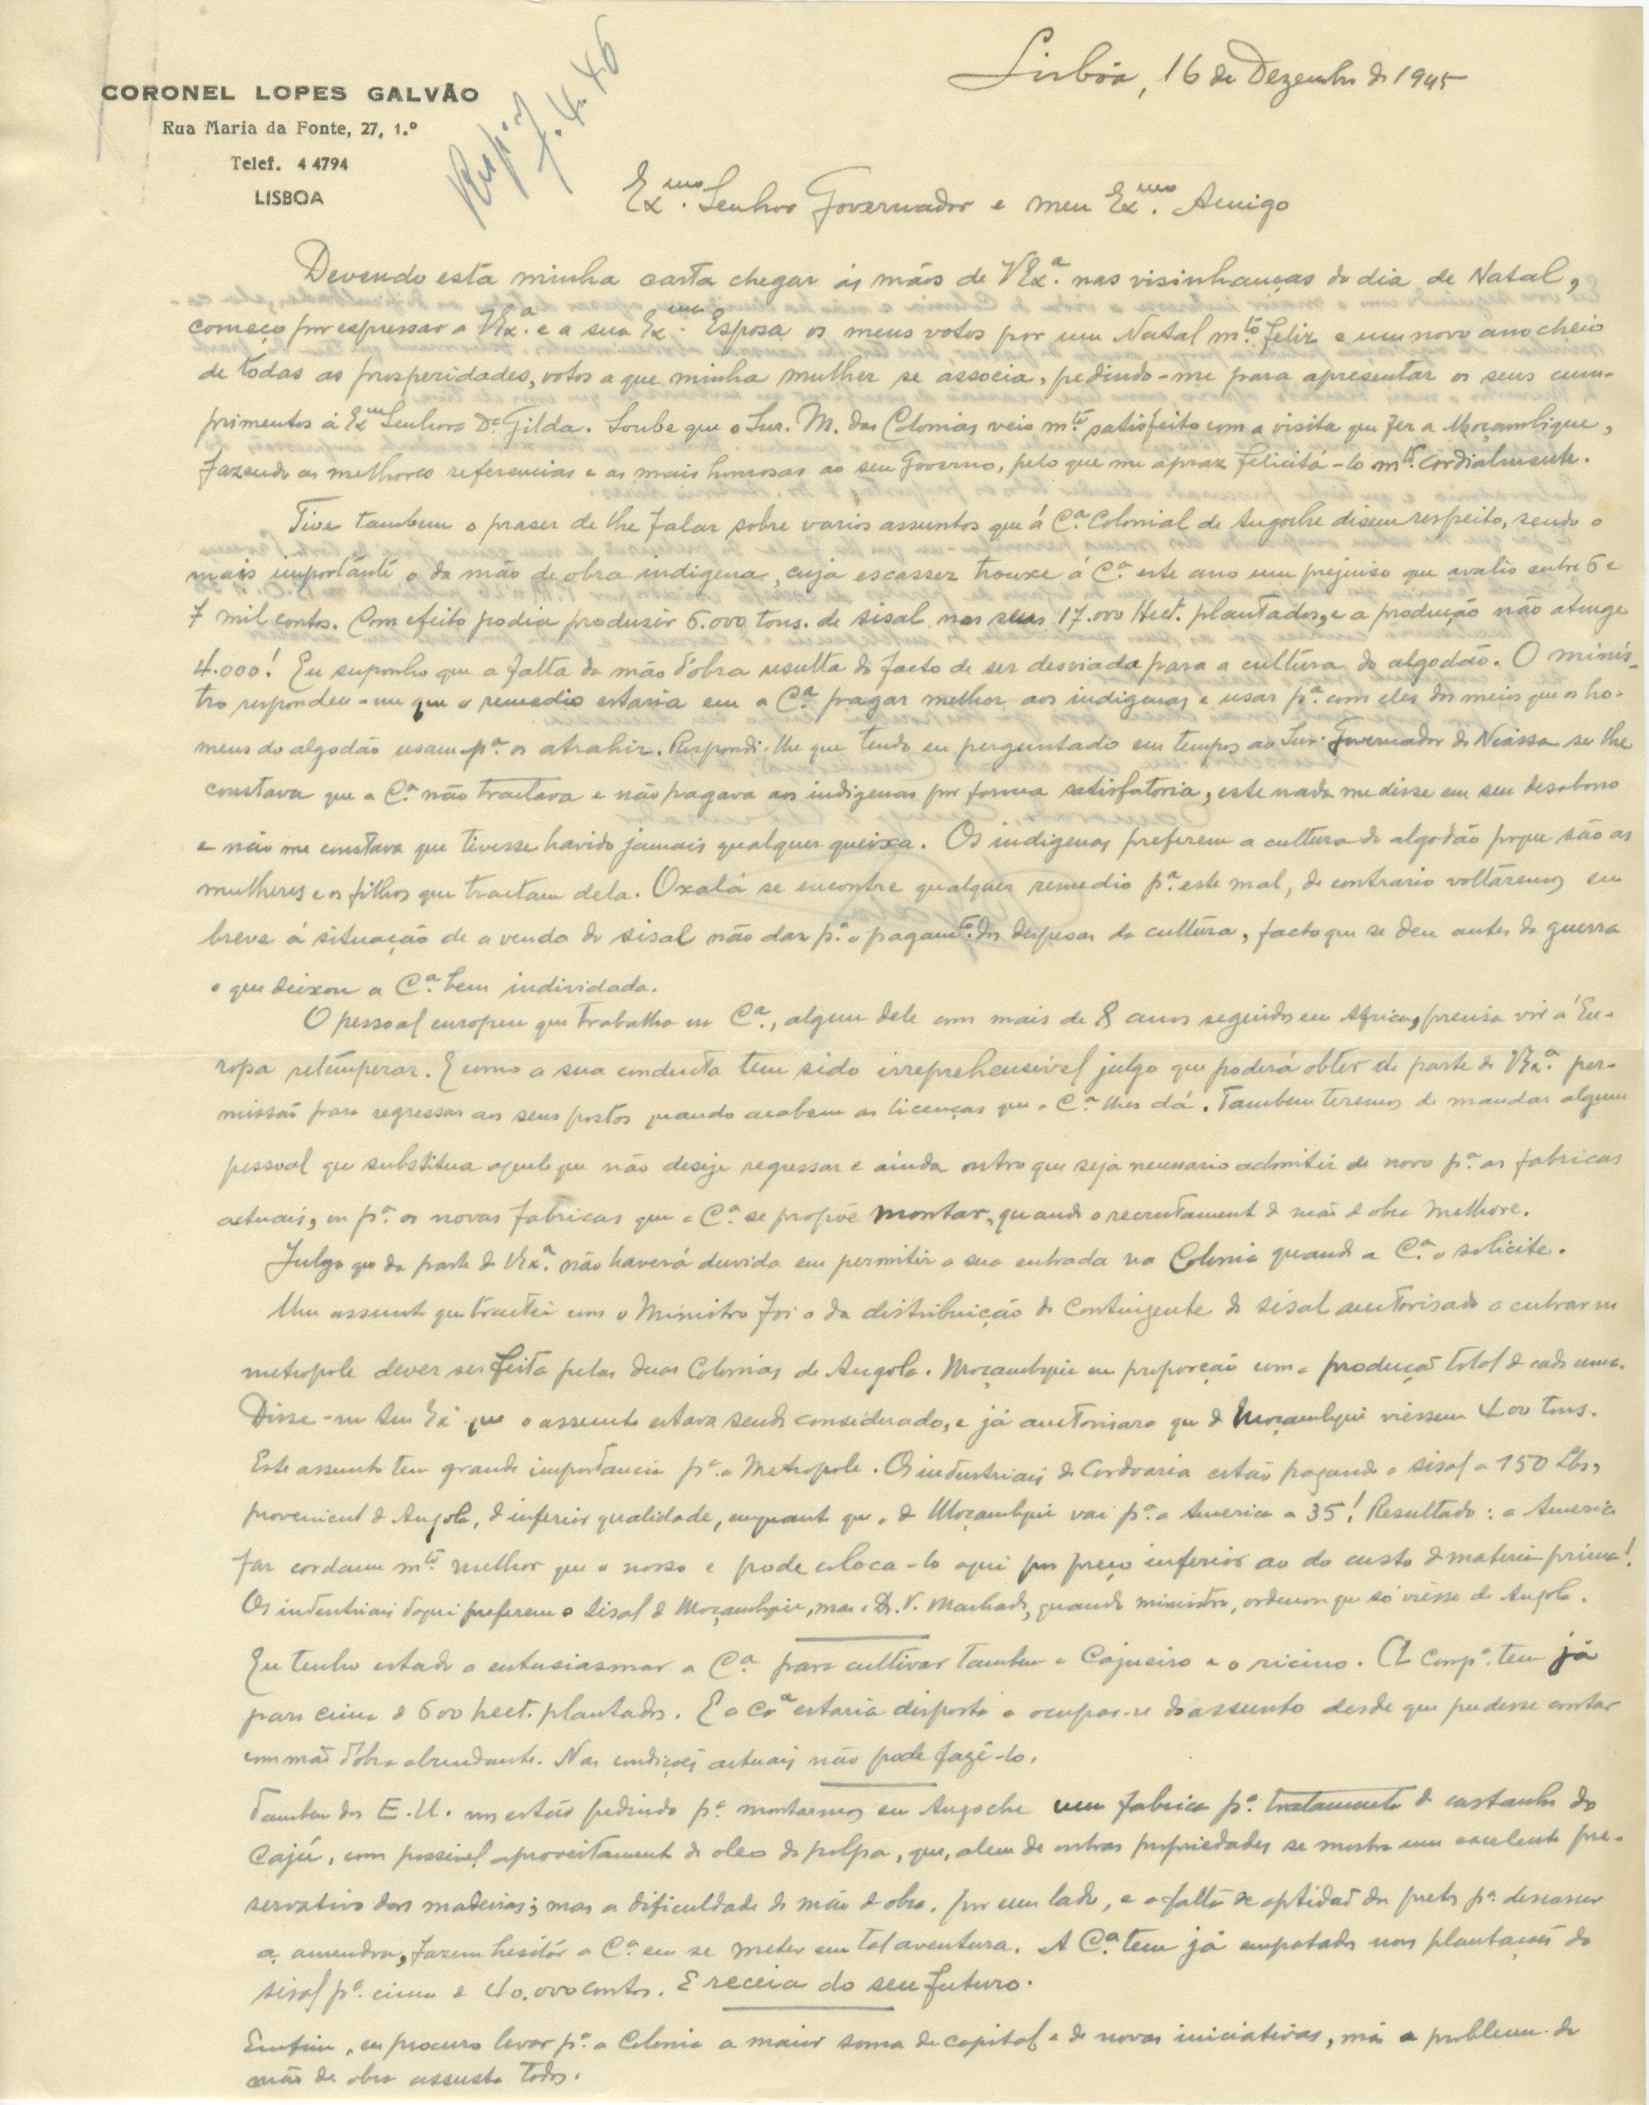 CORONEL LOPES GALVÃO
Rua Maria da Fonte, 27, 1.º
Telef. 4 4794
LISBOA
Resp. 7.4.46
Lisbôa, 16 de Dezembro de 1945
Exmo. Senhor Governador e meu Exmo. Amigo
Devendo esta minha carta chegar ás mãos de VExª. nas visinhanças do dia de Natal,
começo por expressar a VExª. e a sua Exma. Esposa os meus votos por um Natal mto. feliz e um novo ano cheio
de todas as prosperidades, votos a que minha mulher se associa, pedindo-me para apresentar os seus cum-
primentos á Exma Senhora Dª. Gilda. Soube que o Snr. M. das Colonias veio mto. satisfeito com a visita que fez a Moçambique,
fazendo as melhores referencias e as mais honrosas ao seu Governo, pelo que me apraz felicitá-lo mto. cordialmente.
Tive tambem o praser de lhe falar sobre varios assuntos que á Cª. Colonial de Angoche disem respeito, sendo o
mais importante o da mão de obra indigena, cuja escassez trouxe á Cª. este ano um prejuiso que avalio entre 6 e
7 mil contos. Com efeito podia produsir 6.000 tons. de sisal nos seus 17.000 Hect. plantados, e a produção não atinge
4.000! Eu suponho que a falta da mão d'obra resulta do facto de ser desviada para a cultura do algodão. O minis-
tro respondeu-me que o remedio estaria em a Cª. pagar melhor aos indigenas e usar pª. com eles dos meios que os ho-
mens do algodão usam pª. os atrahir. Respondi-lhe que tendo eu perguntado em tempos ao Snr. Governador do Niassa se lhe
constava que a Cª. não tractava e não pagava aos indigenas por forma satisfatoria, este nada me disse em seu desabono
e não me constava que tivesse havido jamais qualquer queixa. Os indigenas preferem a cultura do algodão porque são as
mulheres e os filhos que tractam dela. Oxalá se encontre qualquer remedio pª. este mal, de contrario voltáremos em
breve á situação de a venda do sisal não dar pª. o pagamto. das despesas da cultura, facto que se deu antes da guerra
e que deixou a Cª. bem individada.
O pessoal europeu que trabalha na Cª., algum dele com mais de 8 anos seguidos em Africa, precisa vir á Eu-
ropa retemperar. E como a sua conducta tem sido irreprehensivel julgo que poderá obter da parte de VExª. per-
missão para regressar aos seus postos quando acabem as licenças que a Cª. lhes dá. Tambem teremos de mandar algum
pessoal que substitua aquele que não deseje regressar e ainda outro que seja necessario admitir de novo pª. as fabricas
actuais, ou pª. as novas fabricas que a Cª. se propõe montar, quando o recrutamento de mão de obra melhore.
Julgo que da parte de VExª. não haverá duvida em permitir a sua entrada na Colonia quando a Cª. o solicite.
Um assunto que tractei com o Ministro foi o da distribuição do contingente do sisal auctorisado a entrar na
metropole dever ser feita pelas duas Colonias de Angola e Moçambique em proporção com a produção total de cada uma.
Disse-me Sua Exª que o assunto estava sendo considerado, e já auctorisara que de Moçambique viessem 400 tons.
Este assunto tem grande importancia pª. a Metropole. Os industriais de Cordoaria estão pagando o sisal a 150 Lbs,
proveniente de Angola, de inferior qualidade, enquanto que o de Moçambique vai pª. a America a 35! Resultado: a America
faz cordame mto. melhor que o nosso e pode coloca-lo aqui por preço inferior ao do custo da materia prima!
Os industriais daqui preferem o sisal de Moçambique, mas o Dr. V. Machado, quando ministro, ordenou que só viesse de Angola.
Eu tenho estado a entusiasmar a Cª. para cultivar tambem o Cajueiro e o ricino. A Compª. tem já
para cima de 600 hect. plantados. E a Cª estaria disposta a ocupar-se do assunto desde que pudesse contar
com mão d'obra abundante. Nas condições actuais não pode fazê-lo.
Tambem dos E.U. nos estão pedindo pª. montarmos em Angoche uma fabrica pª. tratamento de castanha de
Cajú, com possivel aproveitamento do oleo da polpa, que, alem de outras propriedades se mostra um excelente pre-
servativo das madeiras; mas a dificuldade da mão de obra, por um lado, e a falta de aptidão dos pretos pª. descascar
a amendoa, fazem hesitar a Cª. em se meter em tal aventura. A Cª. tem já empatados nas plantações do
sisal pª. cima de 40.000 contos. E receia do seu futuro.
Emfim, eu procuro levar pª. a Colonia a maior soma de capital e de novas iniciativas, mas o problema da
mão de obra assusta todos.